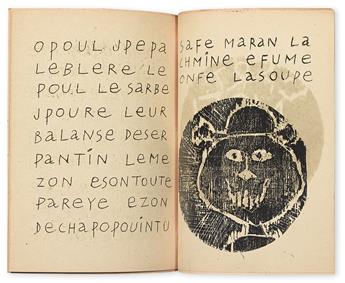 OPOUL JPEPA
LEBLERE LE
POUL LE SARBE
JPOURE LEUR
BALANSE DESER
PANTIN LEME
ZON ESONTOUTE
PAREYE EZON
DECHAPOPOUINTU
SAFE MARAN LA
CHMINE EFUME
ONFE LASOUPE